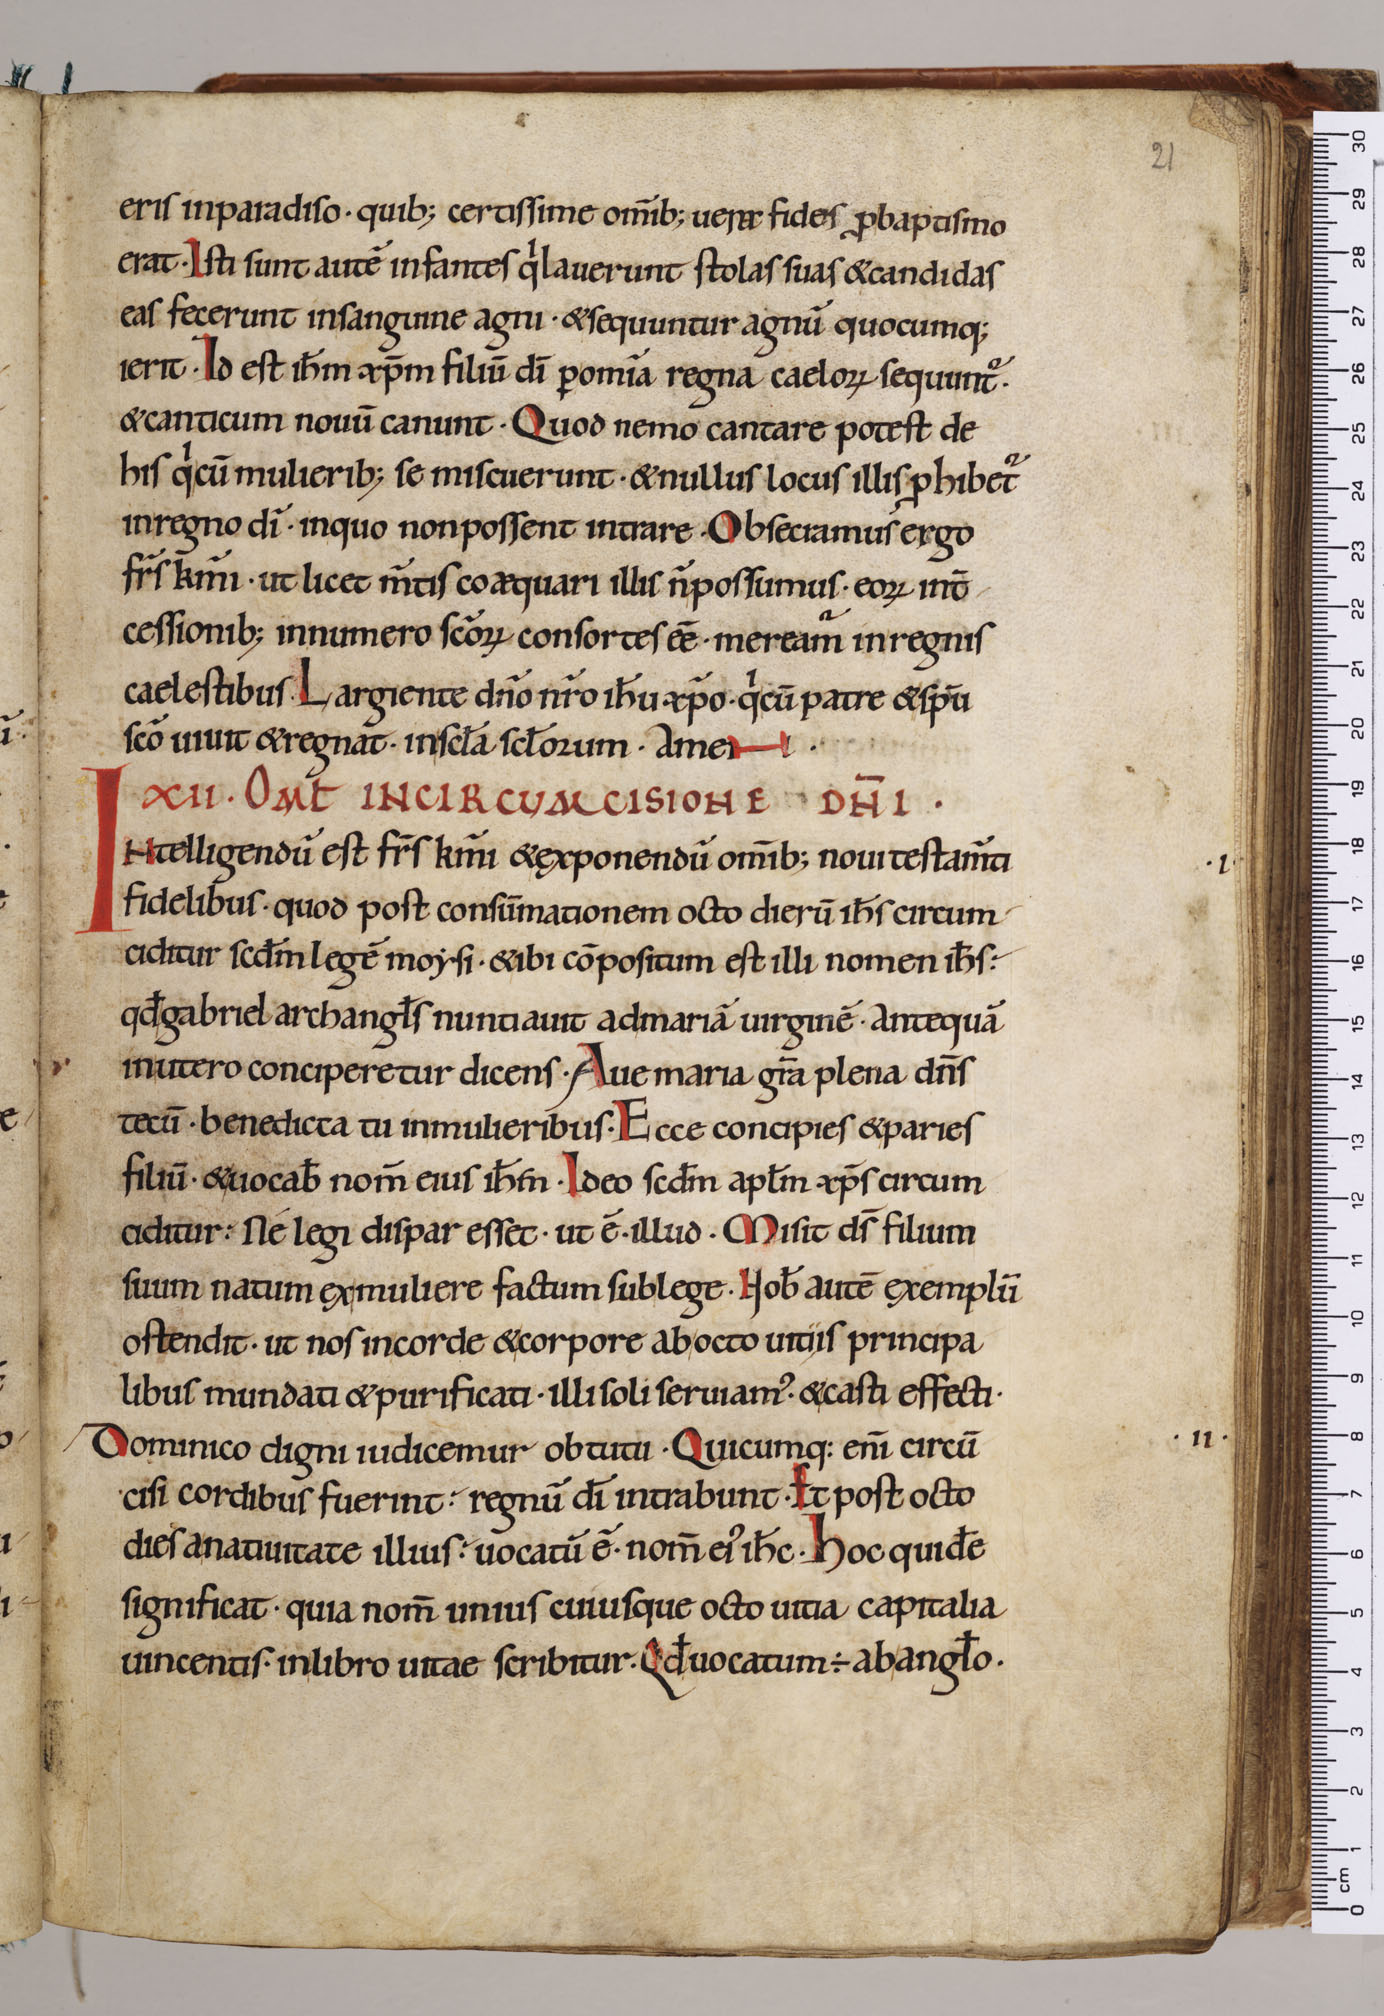 21
eris inparadiso · quib; certissime om̄ib; uerae fides ꝓbaptismo
erat · Isti sunt autē infantes qͥlauerunt stolas suas &candidas
eas fecerunt insanguine agni · &sequuntur agnū quocumq;
ierit · Id est ih̄m xp̄m filiū dī ꝑomīa regna caeloꝝ sequunt᷑ ·
&canticum nouū canunt · Quod nemo cantare potest de
his qͥcū mulierib; se miscuerunt · &nullus locus illis ꝓhibet᷑
inregno dī · inquo nonpossent intrare · Obsecramus ergo
fr̄s km̄i · ut licet m̄tis coaequari illis n̄possumus · eoꝝ int̄
cessionib; innumero scōꝝ consortes eē · meream᷑ inregnis
caelestibus · Largiente dn̄o nr̄o ih̄u xp̄o · qͥcū patre &sp̄u
scō uiuit &regnat · inscl̄a scl̄orum · Amen ·
XII · OMŁ INCIRCUMCISIONE DN̄I ·
INtelligendū est fr̄s km̄i &exponendū om̄ib; noui testam̄ti · I ·
fidelibus · quod post consūmationem octo dierū ih̄s circum
ciditur scd̄m legē moysi · &ibi cōpositum est illi nomen ih̄s :
qd̄gabriel archangl̄s nuntiauit admariā uirginē · Antequā
inutero conciperetur dicens · Aue maria gr̄a plena dn̄s
tecū · benedicta tu inmulieribus · Ecce concipies &paries
filiū · &uocab̄ nom̄ eius ih̄m · Ideo scd̄m apl̄m xp̄s circum
ciditur : Ne legi dispar esset · ut ē · illud · Misit ds̄ filium
suum natum exmuliere factum sublege · Hob̄ autē exemplū
ostendit · ut nos incorde &corpore abocto uitiis principa
libus mundati &purificati · illi soli seruiamꝰ · &casti effecti ·
Dominico digni iudicemur obtutu · Quicumq: enī circū · II ·
cisi cordibus fuerint : regnū dī intrabunt · Et post octo
dies anatiuitate illius : uocatū ē · nom̄ eiꝰ ih̄c · Hoc quidē
significat · quia nom̄ unius cuiusque octo uitia capitalia
uincentis · inlibro uitae scribitur · Qd̄uocatum ÷ abangl̄o ·